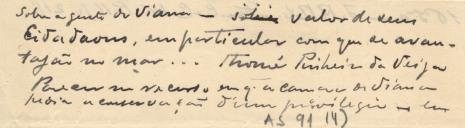 Sobre a gente de Viana — valor de seus
Cidadaons, em particular com que se avan-
tajão no mar... Thomé Pinheiro da Veiga
Parecer no recurso em q a camara de Viana
pedia a conservação d'um privilegio — em
AS 91 (4)